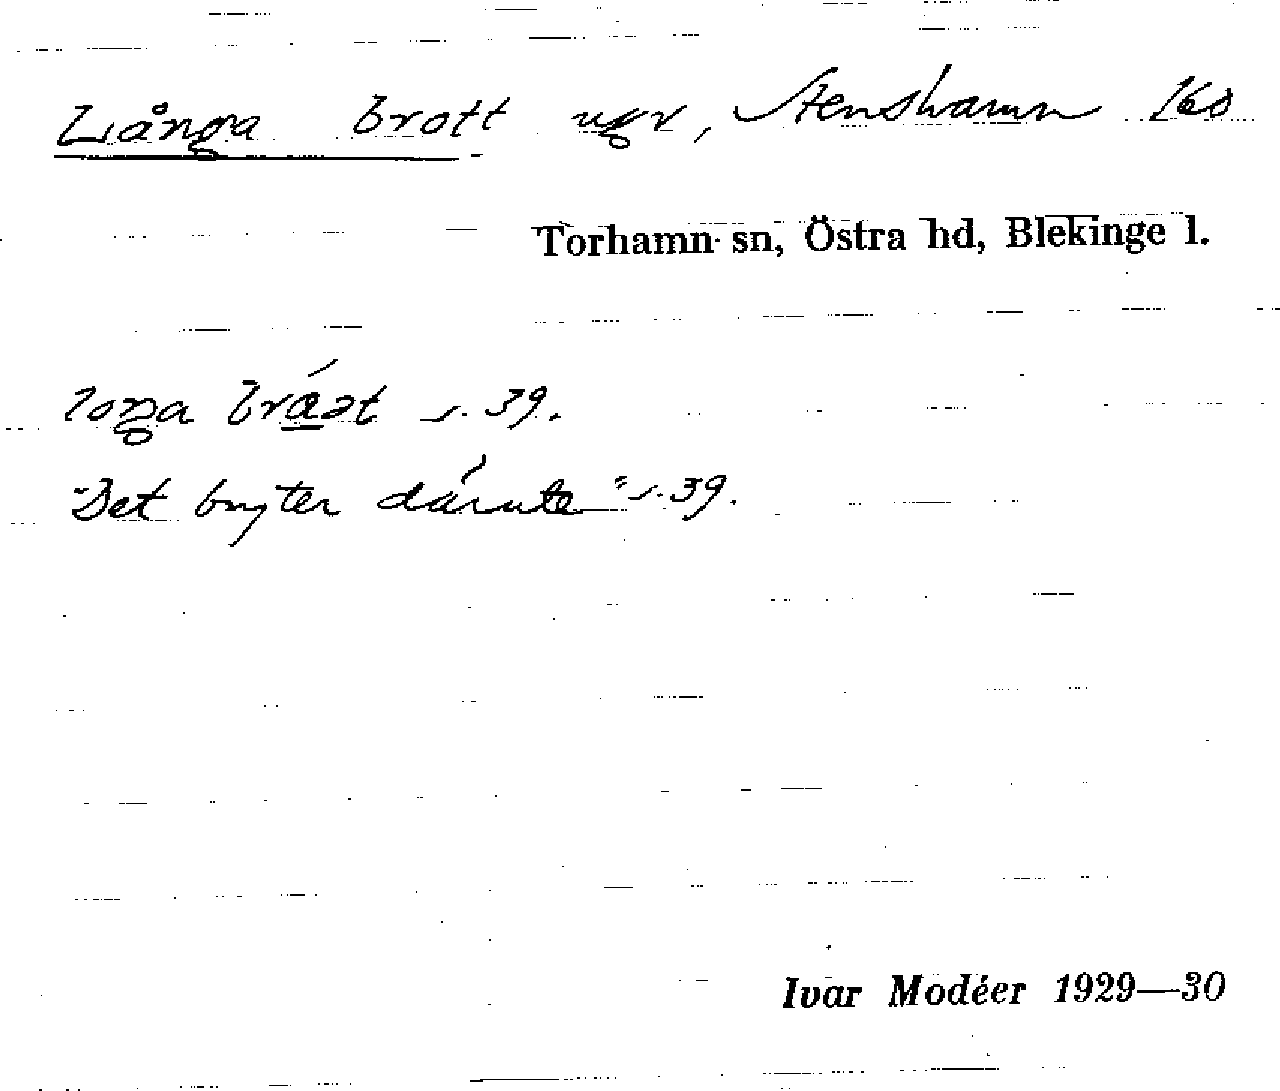 Långa brott ugr, Stenshamn 168
Torhamn sn, Östra hd, Blekinge l.
loŋa bráat s. 39.
"Det bryter därute" s. 39.
Ivar Modéer 1929—30